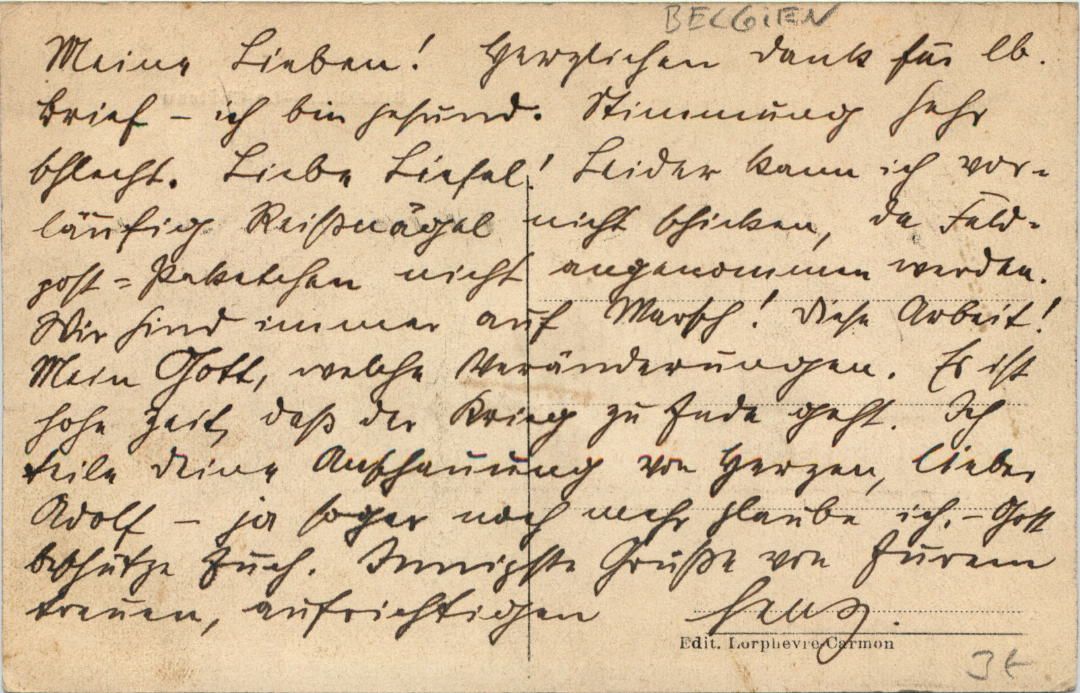 BELGIEN
Meine Lieben! Herzlichen Dank für lb.
Brief – ich bin gesund. Stimmung sehr
schlecht. Liebe Liesel! Leider kann ich vor-
läufig Reißnägel nicht schicken, da Feld-
post-Paketchen nicht angenommen werden.
Wir sind immer auf Marsch! Diese Arbeit!
Mein Gott, welche Veränderungen. Es ist
hohe Zeit, daß der Krieg zu Ende geht. Ich
teile Deine Anschauung von Herzen, lieber
Adolf – ja sogar noch mehr glaube ich. – Gott
beschütze Euch. Innigste Grüße von Eurem
treuen, aufrichtigen
Edit. Lorphèvre-Carmon